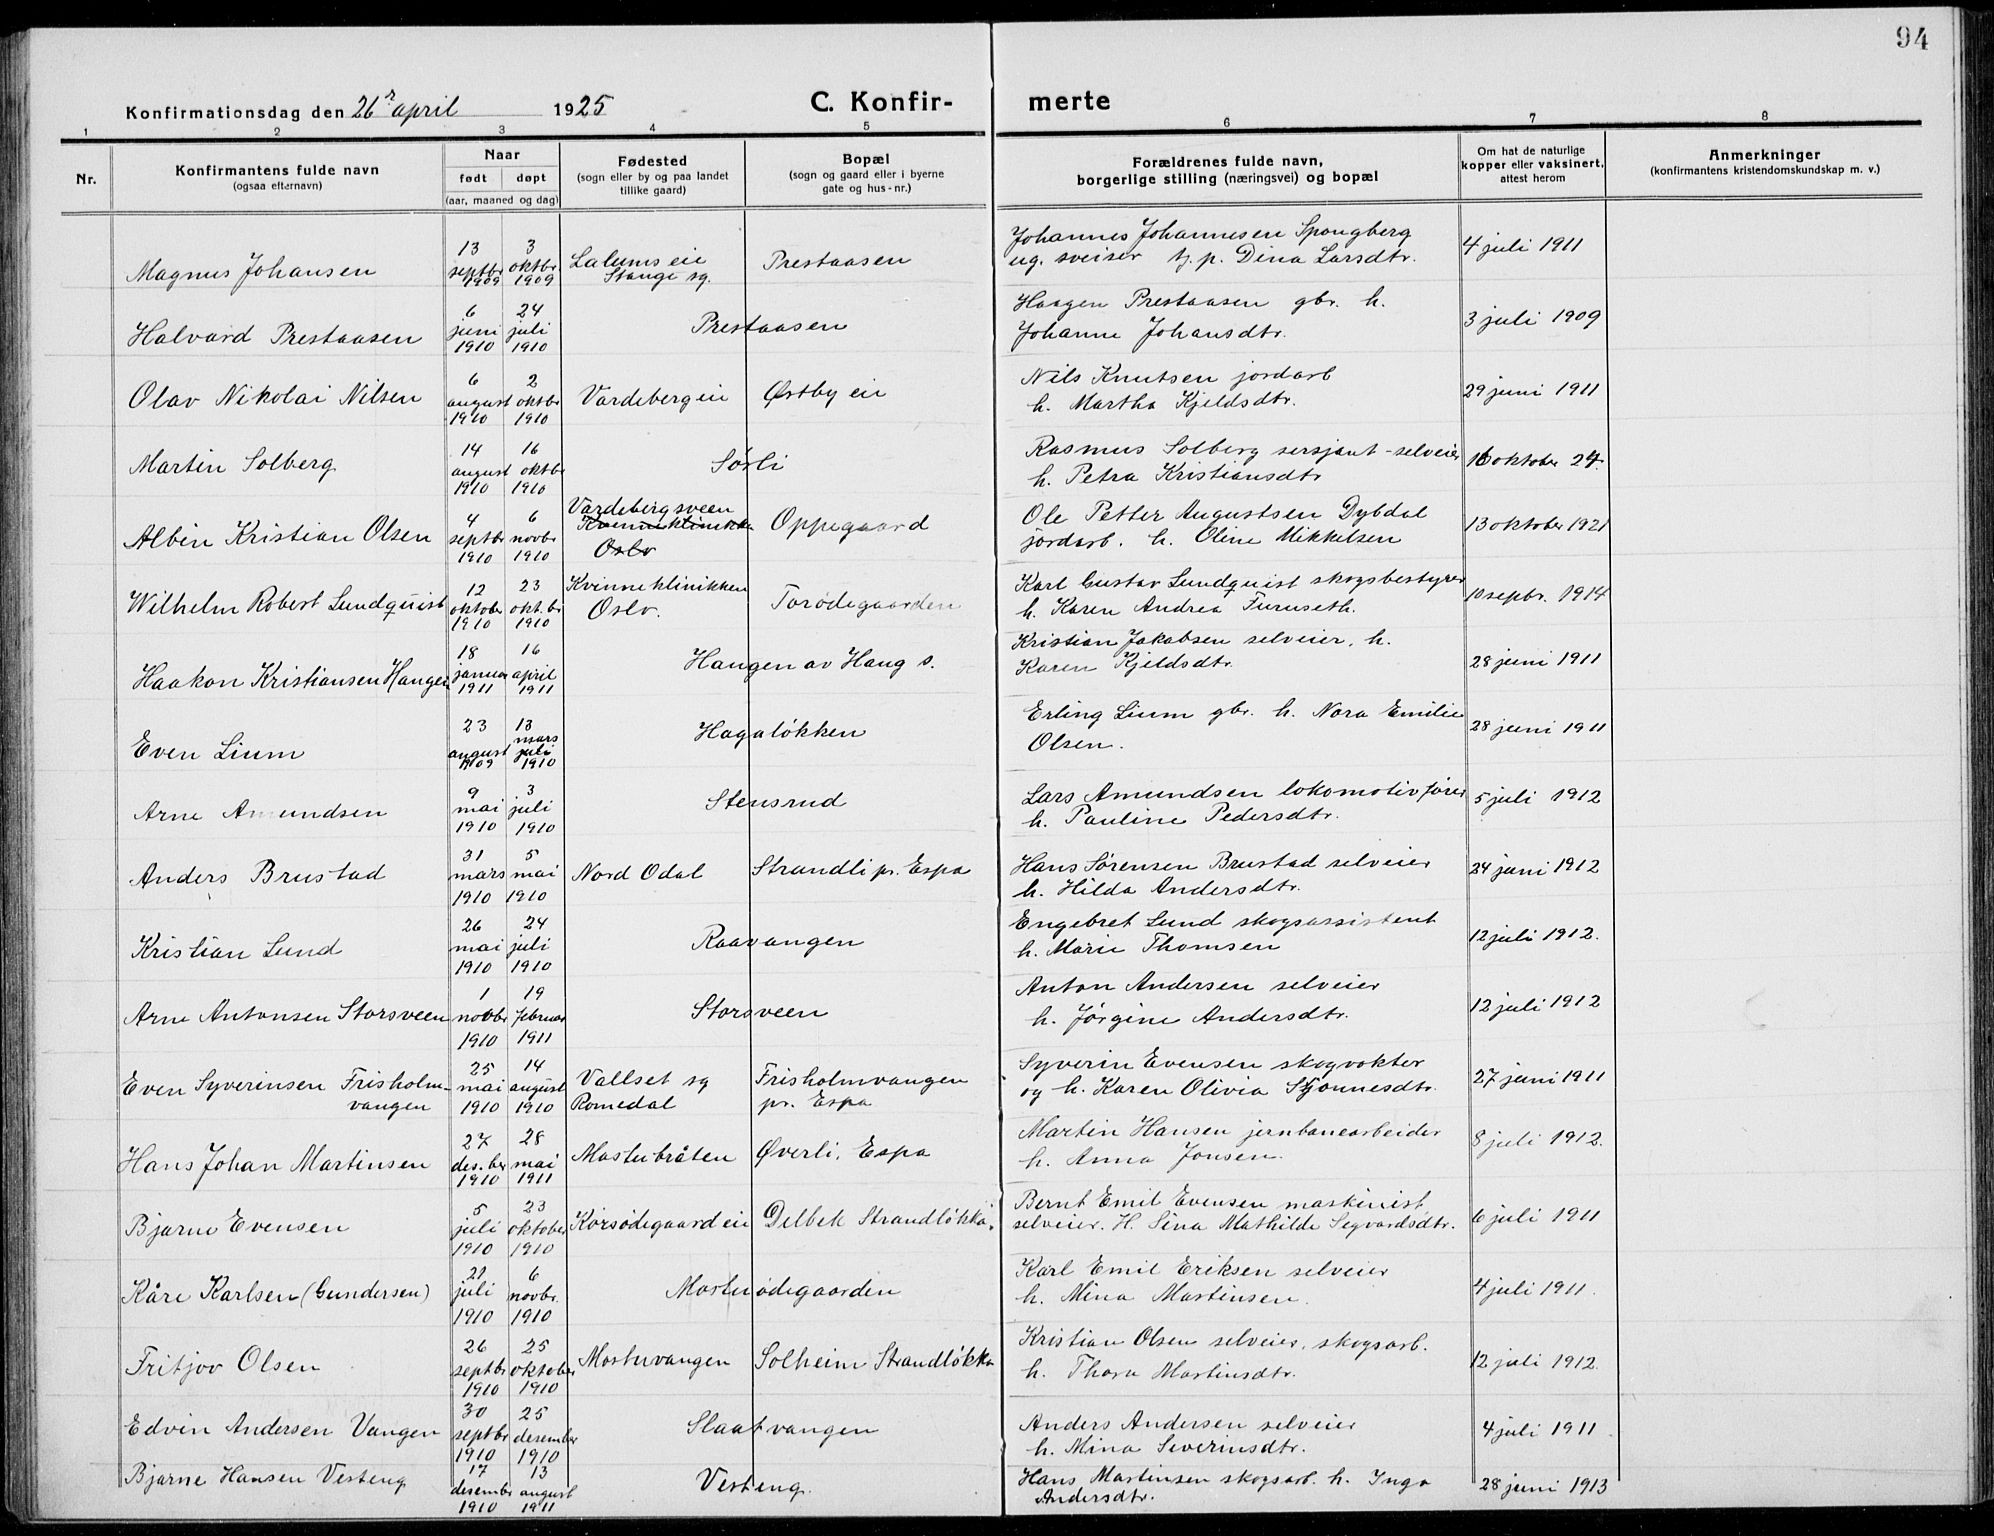 94
Konfirmationsdag den 26r april 1925 C. Konfir- merte
1 2 3 4 5 6 7 8
Nr.
Konfirmantens fulde navn
(ogsaa efternavn)
Naar
født døpt
(aar, maaned og dag)
Fødested
(sogn eller by og paa landet
tillike gaard)
Bopæl
(sogn og gaard eller i byerne
gate og hus-nr.)
Forældrenes fulde navn,
borgerlige stilling (næringsvei) og bopæl
Om hat de naturlige
kopper eller vaksinert,
attest herom
Anmerkninger
(konfirmantens kristendomskundskap m. v.)
Magnus Johansen
13 septbr 1909
3 oktbr 1909
Lalums eie
Stange sg.
Prestaasen
Johannes Johannesen Spongberg
ug. sveiser t.p. Dina Larsdtr.
4 juli 1911
Halvard Prestaasen
6 juni 1910
24 juli 1910
Prestaasen
Haagen Prestaasen gbr. h.
Johanne Johansdtr.
3 juli 1909
Olav Nikolai Nilsen
6 august 1910
2 oktbr 1910
Vardeberg eie
Østby eie
Nils Knutsen jordarb
h. Martha Kjeldsdtr.
29 juni 1911
Martin Solberg
14 august 1910
16 oktbr 1910
Sørli
Rasmus Solberg sersjant - selveier
h. Petra Kristiansdtr
16 oktober 24.
Albin Kristian Olsen
4 septbr 1910
6 novbr 1910
Vardebergsveen
Kvinneklinikken
Oslo
Oppegaard
Ole Petter Augustsen Dybdal
jordarb. h. Oline Mikkelsen
13 oktober 1921
Wilhelm Robert Lundquist
12 oktober 1910
23 okt.br 1910
Kvinneklinikken
Oslo.
Torødegaarden
Karl Gustav Lundquist skogsbestyrer
h. Karen Andrea Furuseth.
10 sepbr. 1914
Haakon Kristiansen Haugen
18 januar 1911
16 april 1911
Haugen av Haug s.
Kristian Jakobsen selveier, h.
Karen Kjeldsdtr.
28 juni 1911
Even Lium
23 august 1909
13 mars juli 1910
Hagaløkken
Erling Lium gbr. h. Nora Emilie
Olsen.
28 juni 1911
Arne Amundsen
9 mai 1910
3 juli 1910
Stensrud
Lars Amundsen lokomotivfører
h. Pauline Pedersdtr.
5 juli 1912
Anders Brustad
31 mars 1910
5 mai 1910
Nord Odal
Strandli pr. Espa
Hans Sørensen Brustad selveier
h. Hilda Andersdtr.
24 juni 1912
Kristian Lund
26 mai 1910
24 juli 1910
Raavangen
Engebret Lund skogsassistent
h. Marie Thomsen
12 juli 1912.
Arne Antonsen Storsveen
1 novbr 1910
19 februar 1911
Storsveen
Anton Andersen selveier
h. Jørgine Andersdtr.
12 juli 1912
Even Syverinsen Frisholm-
vangen
25 mai 1910
14 august 1910
Vallset sg
Romedal
Frisholmvangen
pr. Espa
Syverin Evensen skogvokter
og h. Karen Olivia Stjonnesdtr.
27 juni 1911
Hans Johan Martinsen
27 des.ber 1910
28 mai 1911
Mosterbråten
Øverli, Espa
Martin Hansen jernbanearbeider
h. Anna Jonsen.
8 juli 1912.
Bjarne Evensen
5 juli 1910
23 oktober 1910
Korsødegaard eie
Delbek Strandløkka.
Bernt Emil Evensen maskinist
selveier. H. Lina Mathilde Segvardsdtr.
6 juli 1911
Kåre Karlsen (Gundersen)
juli 1910
6 novbr. 1910
Mosterødegaarden
Karl Emil Eriksen selveier
h. Mina Martinsen.
4 juli 1911.
Fritjov Olsen
26 septbr 1910
25 oktober 1910
Mostervangen
Solheim Strandløkka
Kristian Olsen selveier, skogsarb.
h. Thora Martinsdtr.
12 juli 1912.
Edvin Andersen Vangen
30 septbr 1910
25 desember 1910
Slaatvangen
Anders Andersen selveier
h. Mina Severinsdtr.
4 juli 1911
Bjarne Hansen Vesteng
17 desember 1910
13 august 1911
Vesteng.
Hans Martinsen skogsarb. h. Inga
Andersdtr.
28 juni 1913